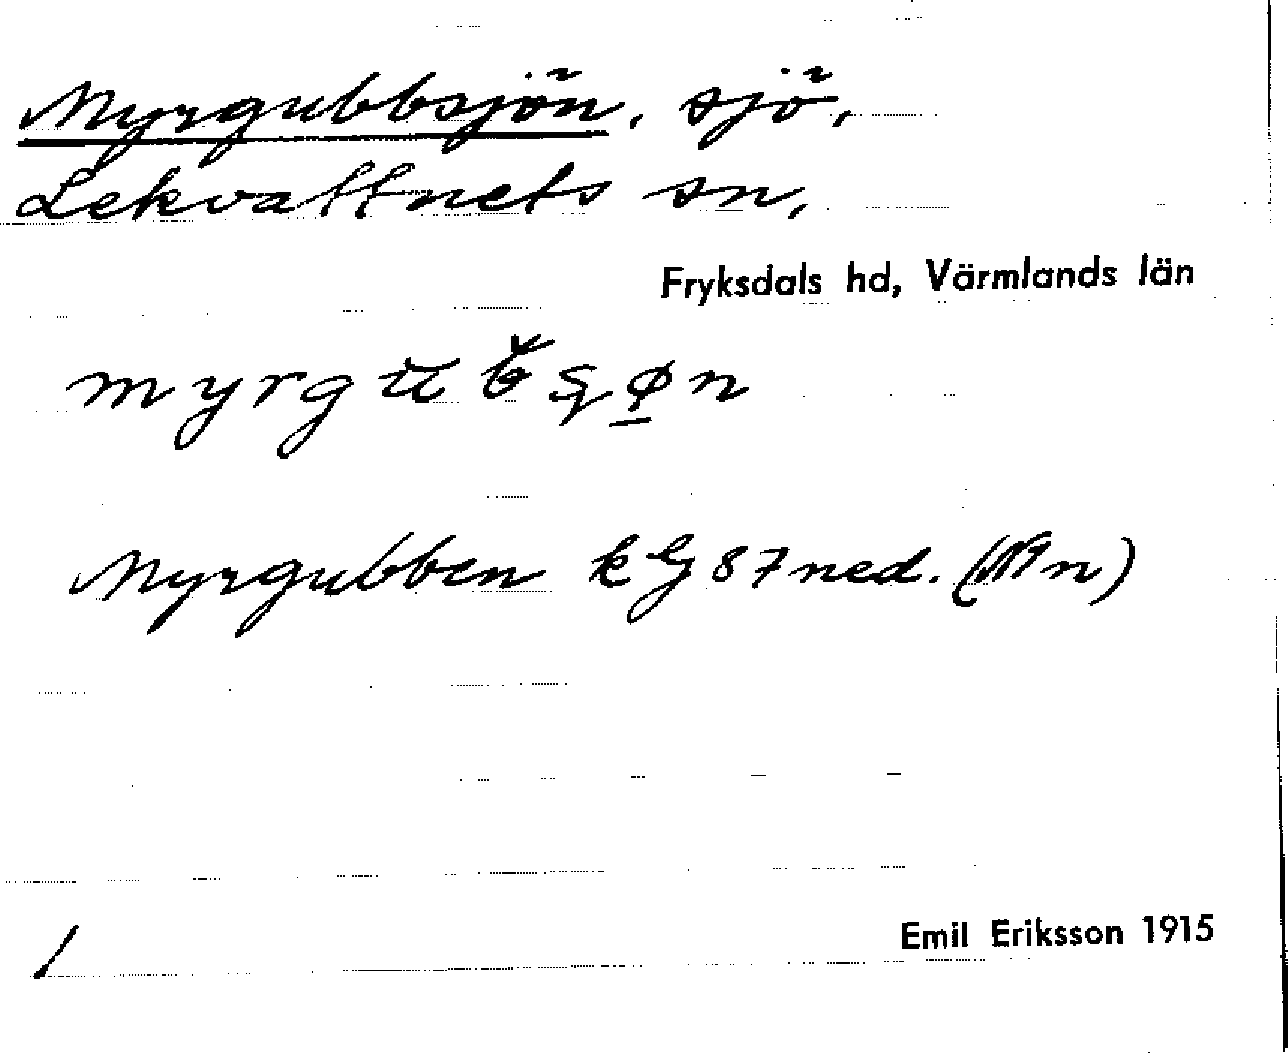 Myrgubbsjön, sjö,
Lekvattnets sn,
Fryksdals hd, Värmlands län
Myrgubben k G 87 ned. (Mn)
Emil Eriksson 1915